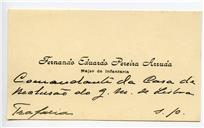 Fernando Eduardo Pereira Arruda
Major de Infantaria
Comandante da Casa de
Reclusão do g. m. de Lisboa
Trafaria s. p.